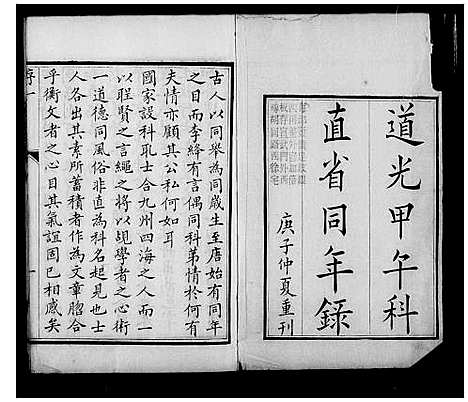 道光甲午科
直省同年錄
庚子仲夏重刊
古人以同舉為同歲生至唐始有同年
之目而李絳有言偶同科第情於何有
夫情亦顧其公私何如耳
國家設科取士合九州四海之人而一
以聖賢之言繩之將以覘學者之心術
一道德同風俗非直為科名起見也士
人各出其素所蓄積者作為文章脗合
乎衡文者之心目其氣誼固已相感矣
序一